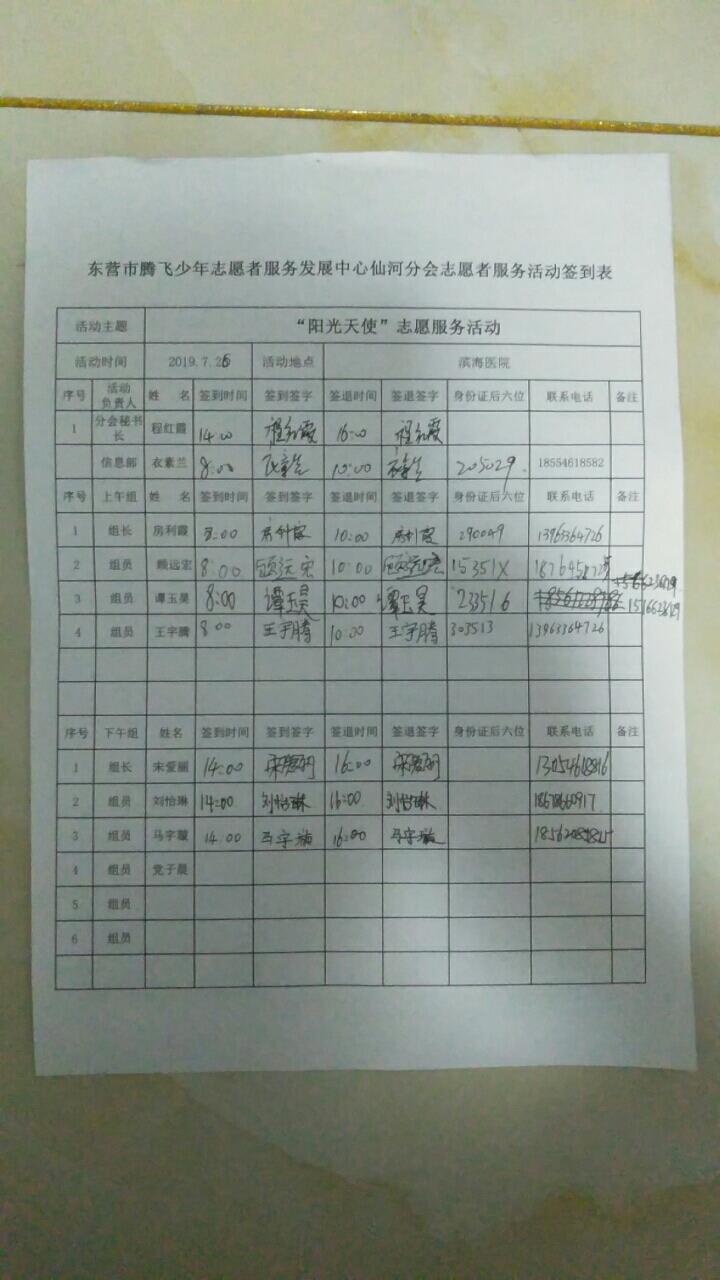 东营市腾飞少年志愿者服务发展中心仙河分会志愿者服务活动签到表
活动主题 “阳光天使”志愿服务活动
活动时间 2019.7.26 活动地点 滨海医院
序号 活动负责人 姓 名 签到时间 签到签字 签退时间 签退签字 身份证后六位 联系电话 备注
1 分会秘书长 程红霞 14:00 程红霞 16:00 程红霞
信息部 衣素兰 8:00 10:00 205029 18554618582
序号 上午组 姓 名 签到时间 签到签字 签退时间 签退签字 身份证后六位 联系电话 备注
1 组长 房利霞 8:00 房利霞 10:00 房利霞 290049 13963364726
2 组员 顾远宏 8:00 顾远宏 10:00 顾远宏 15351X
3 组员 谭玉昊 8:00 谭玉昊 10:00 谭玉昊 233516
4 组员 王宇腾 8:00 王宇腾 10:00 王宇腾 303513 13963364726
序号 下午组 姓名 签到时间 签到签字 签退时间 签退签字 身份证后六位 联系电话 备注
1 组长 宋爱丽 14:00 宋爱丽 16:00 宋爱丽
2 组员 刘怡琳 14:00 刘怡琳 16:00 刘怡琳
3 组员 马字璇 14:00 马字璇 16:00 马字璇
4 组员 党子晨
5 组员
6 组员